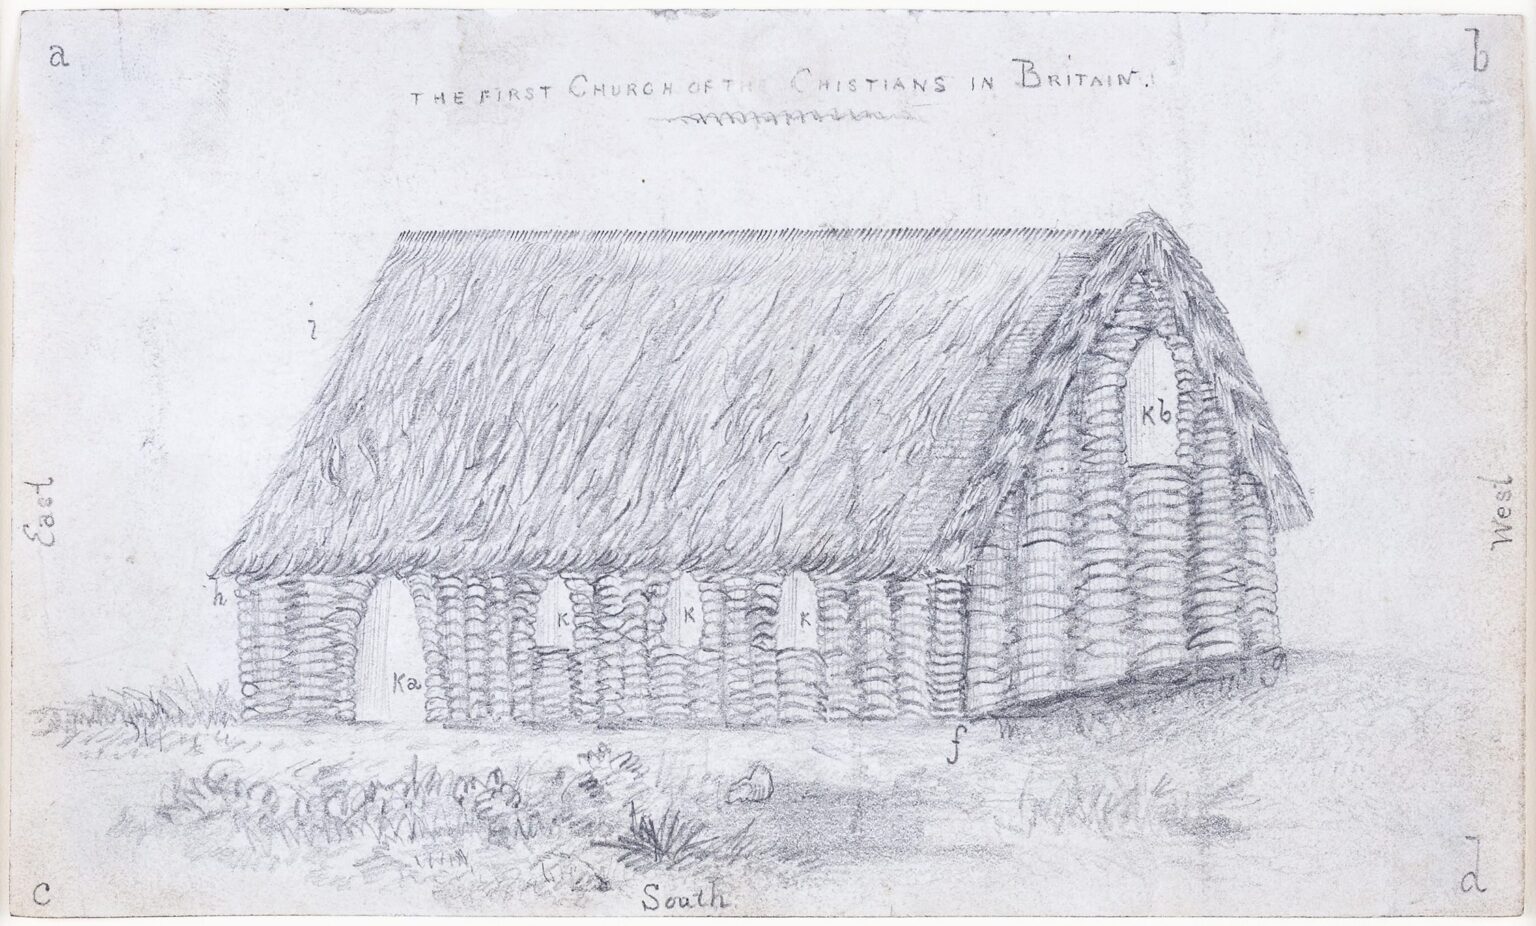 a
b
THE FIRST CHURCH OF THE CHISTIANS IN BRITAIN.
l
Kb
East
West
h
K
K
K
Ka
g
f
South.
c
d